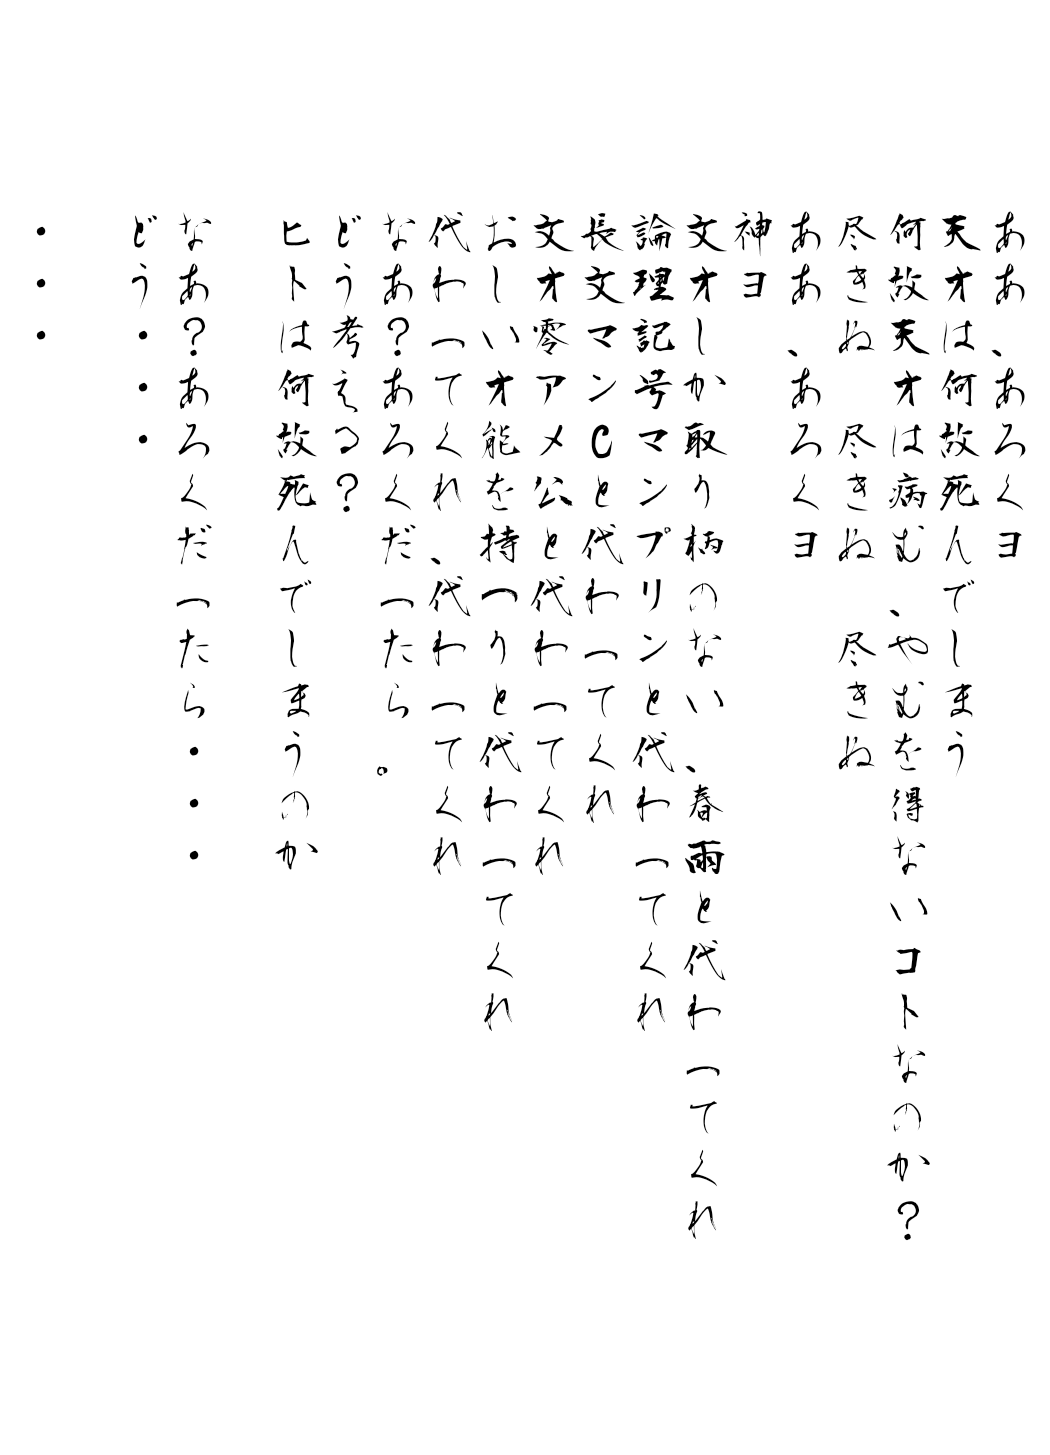 ああ、あろくヨ
天才は何故死んでしまう
何故天才は病む、やむを得ないコトなのか？
尽きぬ　尽きぬ　尽きぬ
ああ、あろくヨ
神ヨ
文才しか取り柄のない、春雨と代わってくれ
論理記号マンプリンと代わってくれ
長文マンCと代わってくれ
文才零アメ公と代わってくれ
おしい才能を持つりと代わってくれ
代わってくれ、代わってくれ
なあ？あろくだったら。
どう考える？
ヒトは何故死んでしまうのか
なあ？あろくだったら・・・
どう・・・
・・・